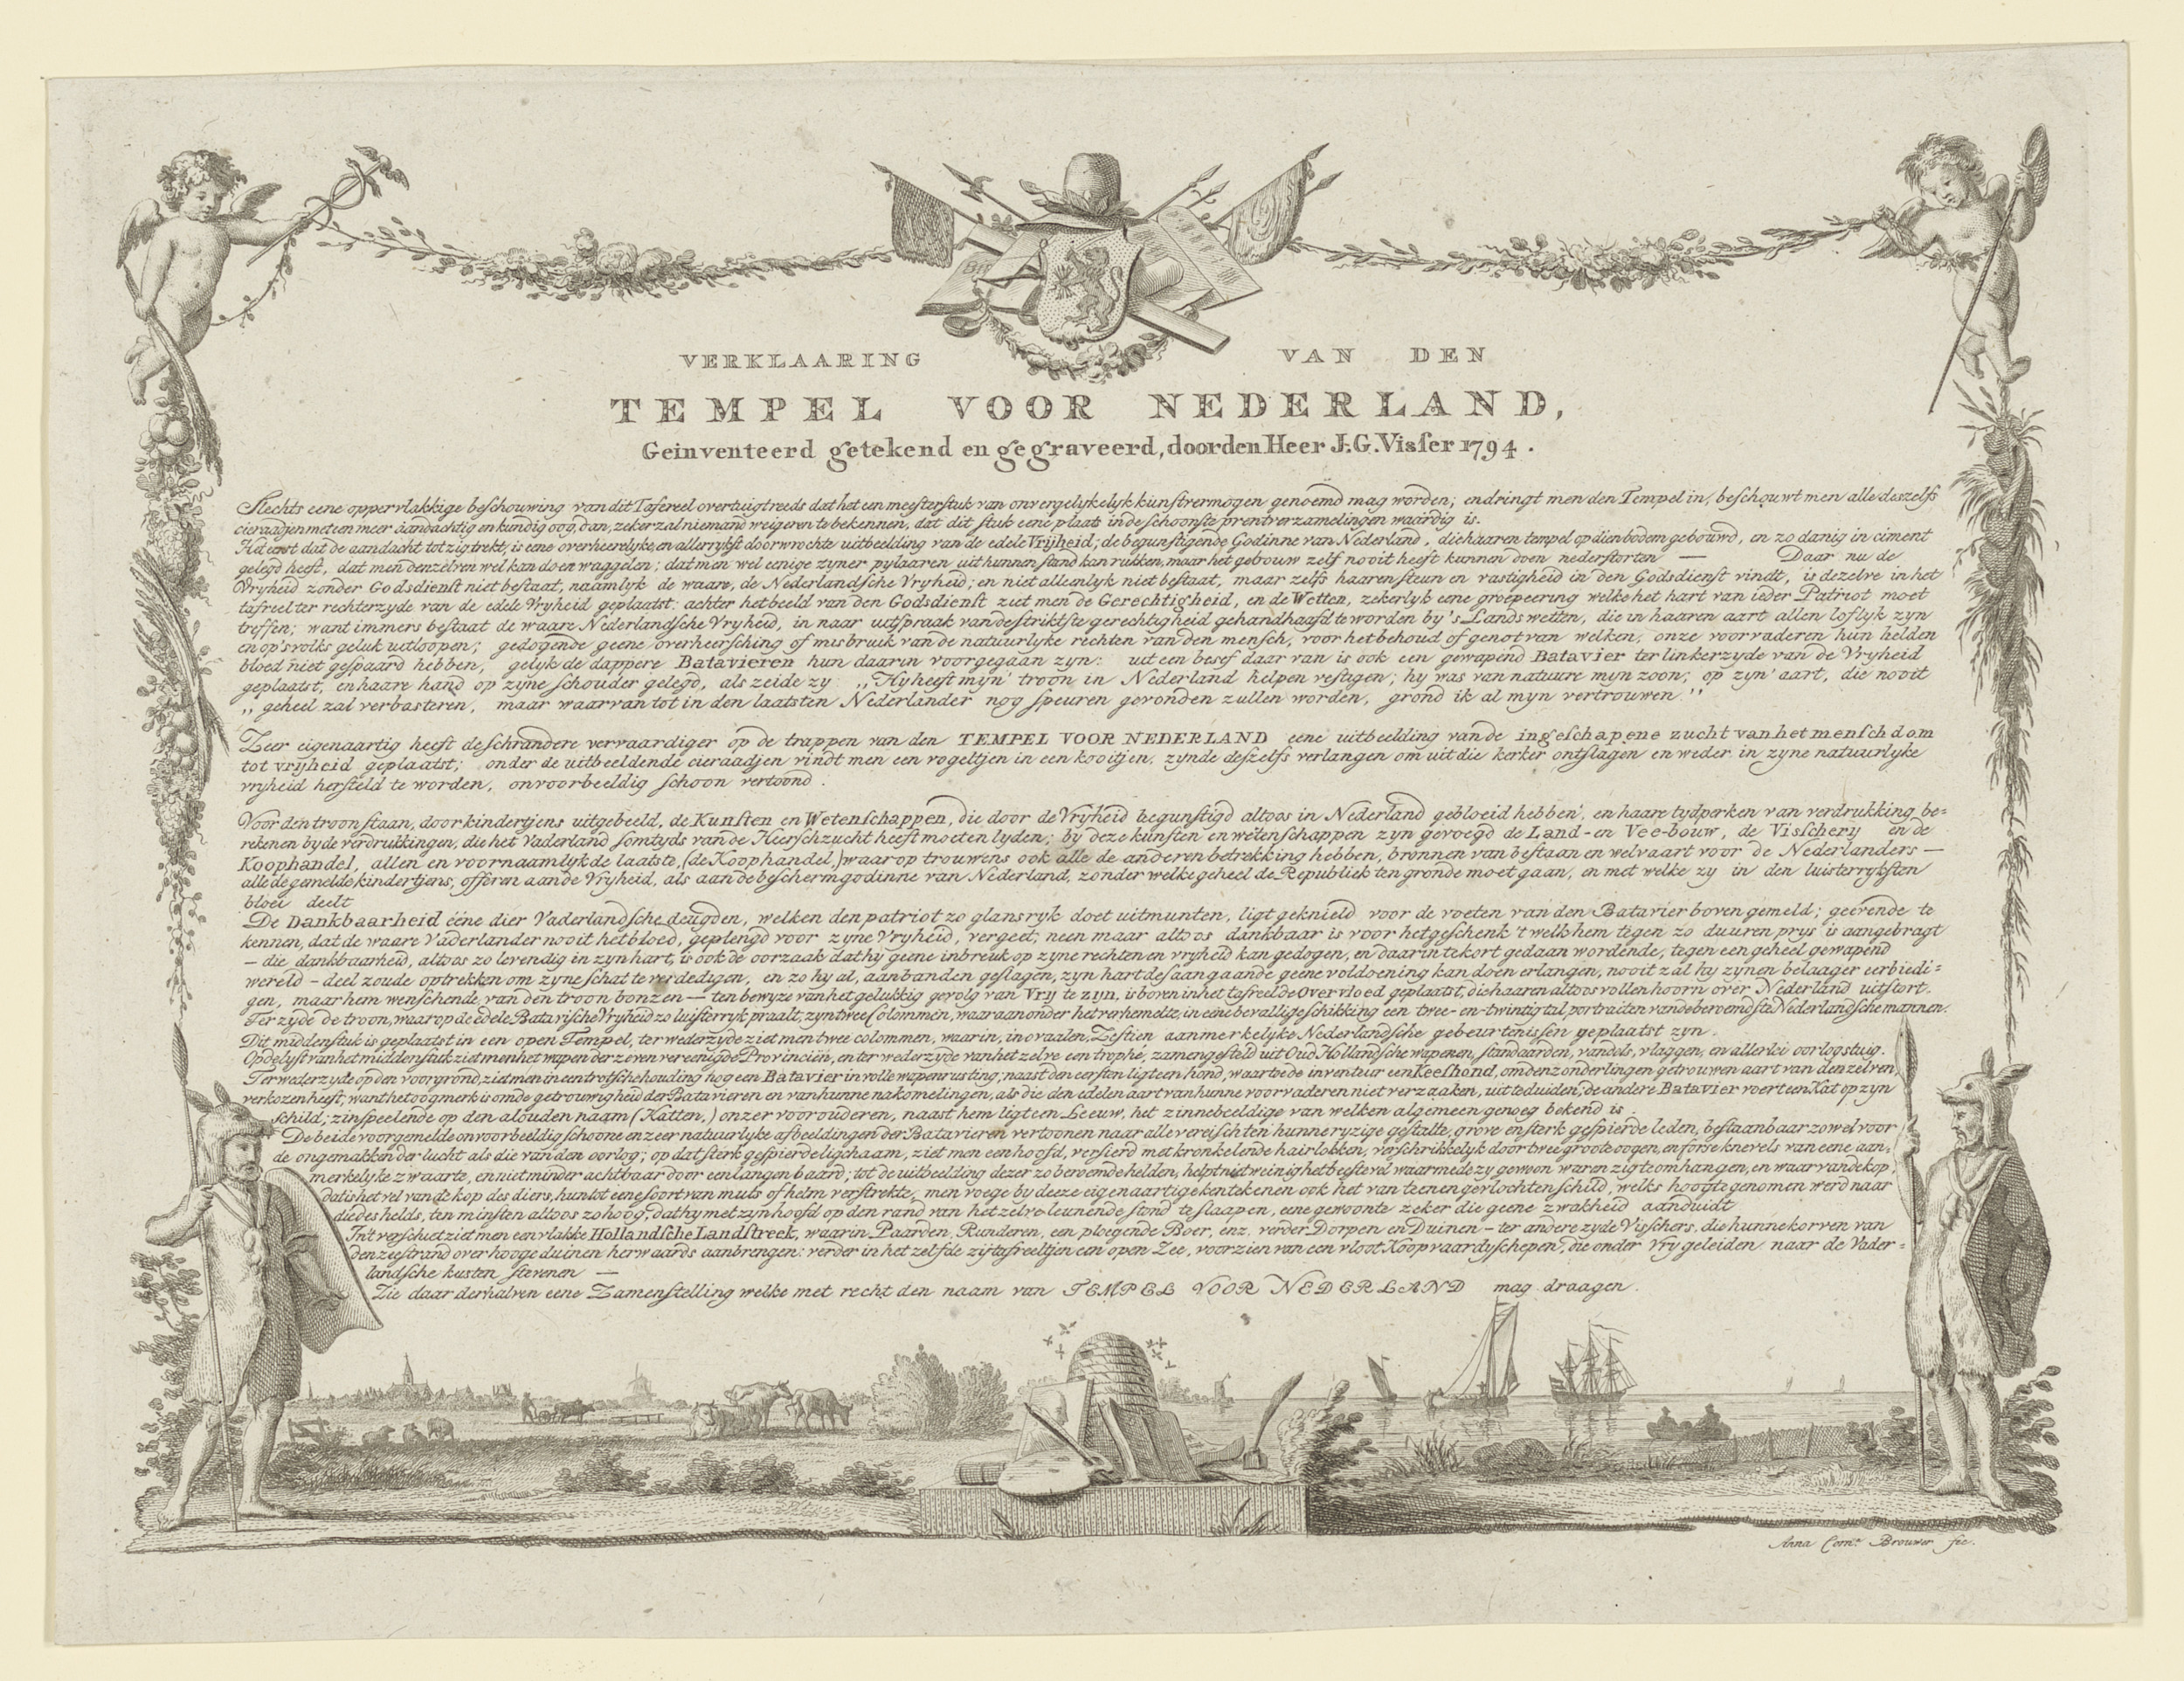 VERKLAARING VAN DEN
TEMPEL VOOR NEDERLAND,
Geinventeerd getekend en gegraveerd, door den Heer J.G. Visſer 1794.
Slechts eene oppervlakkige beſchouwing van dit Tafereel overtuigt reeds dat het een meesterstuk van onvergelykelyk kunstvermogen genoemd mag worden; en dringt men den Tempel in, beſchouwt men alle deszelfs
cieraadjen met een meer aandachtig en kundig oog, dan, zeker zal niemand weigeren te bekennen, dat dit ſtuk eene plaats in de ſchoonste prentverzamelingen waardig is.
Het eerst dat de aandacht tot zig trekt, is eene overheerelyke, en allerrykst doorwrochte uitbeelding van de edele Vrijheid; de begunstigende Godinne van Nederland, die haaren tempel op dien bodem gebouwd, en zo danig in ciment
gelegd heeft, dat men denzelven wel kan doen waggelen; dat men wel eenige zyner pylaaren uit hunnen ſtand kan rukken, maar het gebouw zelf nooit heeft kunnen doen nederstorten — Daar nu de
Vryheid zonder Godsdienſt niet bestaat, naamlyk de waare, de Nederlandſche Vryheid; en niet alleenlyk niet bestaat, maar zelfs haaren ſteun en vastigheid in den Godsdienſt vindt, is dezelve in het
tafreel ter rechterzyde van de edele Vryheid geplaatst: achter het beeld van den Godsdienſt ziet men de Gerechtigheid, en de Wetten, zekerlyk eene groepeering welke het hart van ieder Patriot moet
treffen; want immers bestaat de waare Nederlandſche Vryheid, in naar uitspraak van de ſtrikſte gerechtigheid gehandhaafd te worden by 's Lands wetten, die in haaren aart allen loflyk zyn
en op 's volks geluk uitloopen; gedogende geene overheersching of misbruik van de natuurlyke rechten van den mensch, voor het behoud of genot van welken, onze voorvaderen hun helden
bloed niet gespaard hebben, gelyk de dappere Batavieren hun daarin voorgegaan zyn: uit een besef daar van is ook een gewapend Batavier ter linkerzyde van de Vryheid
geplaatst, en haare hand op zyne ſchouder gelegd, als zeide zy „Hy heeft myn' troon in Nederland helpen vestigen; hy was van natuure myn zoon; op zyn' aart, die nooit
„geheel zal verbasteren, maar waarvan tot in den laatsten Nederlander nog ſpeuren gevonden zullen worden, grond ik al myn vertrouwen"
Zeer eigenaartig heeft de ſchrandere vervaardiger op de trappen van den TEMPEL VOOR NEDERLAND eene uitbeelding van de ingeſchapene zucht van het menſchdom
tot vrijheid geplaatst; onder de uitbeeldende cieraadjen vindt men een vogeltjen in een kooitjen, zynde deszelfs verlangen om uit die kerker ontslagen en weder in zyne natuurlyke
vryheid hersteld te worden, onvoorbeeldig ſchoon vertoond.
Voor den troon ſtaan, door kindertjens uitgebeeld, de Kunſten en Wetenſchappen, die door de Vryheid begunstigd altoos in Nederland gebloeid hebben, en haare tydperken van verdrukking be-
rekenen by de verdrukkingen, die het Vaderland ſomtyds van de Heerschzucht heeft moeten lyden; by deze kunsten en wetenschappen zyn gevoegd de Land- en Vee-bouw, de Visſchery en de
Koophandel, allen en voornaamlyk de laatste, (de Koophandel,) waar op trouwens ook alle de anderen betrekking hebben, bronnen van bestaan en welvaart voor de Nederlanders —
alle de gemelde kindertjens, offeren aan de Vryheid, als aan de beschermgodinne van Nederland, zonder welke geheel de Republiek ten gronde moet gaan, en met welke zy in den luisterryksten
bloei deelt
De Dankbaarheid eene dier Vaderlandſche deugden, welken den patriot zo glansryk doet uitmunten, ligt geknield voor de voeten van den Batavier boven gemeld; geevende te
kennen, dat de waare Vaderlander nooit het bloed, geplengd voor zyne Vryheid, vergeet; neen maar altoos dankbaar is voor het geschenk 't welk hem tegen zo duuren prys is aangebragt
— die dankbaarheid, altoos zo levendig in zyn hart, is ook de oorzaak dat hy geene inbreuk op zyne rechten en vryheid kan gedogen, en daarin te kort gedaan wordende, tegen een geheel gewapend
wereld-deel zoude optrekken om zyne ſchat te verdedigen, en zo hy al, aan banden geslagen, zyn hart desaangaande geene voldoening kan doen erlangen, nooit zal hy zynen belaager eerbiedi=
gen, maar hem wenschende van den troon bonzen — ten bewyze van het gelukkig gevolg van Vrij te zijn, is boven in het tafreel de Overvloed geplaatst, die haaren altoos vollen hoorn over Nederland uitstort.
Ter zyde de troon, waar op de edele Batavische Vryheid zo luisterryk praalt, zyn twee Colommen, waar aan onder het verhemelte, in eene bevallige schikking een twee-en-twintigtal, portraiten van de beroemdste Nederlandsche mannen.
Dit middenstuk is geplaatst in een open Tempel, ter wederzyde ziet men twee colommen, waarin, in ovaalen, Zestien aanmerkelyke Nederlandſche gebeurtenissen geplaatst zyn.
Op de lyst van het middenstuk ziet men het wapen der zeven vereenigde Provinciën, en ter wederzyde van het zelve een trophé, zamengesteld uit Oud Hollandsche wapenen, ſtandaarden, vandels, vlaggen, en allerlei oorlogstuig.
Ter wederzyde op den voorgrond, ziet men in een trotsche houding nog een Batavier in volle wapenrusting; naast den eersten ligt een hond, waartoe de inventeur een Keeſhond, om den zonderlingen getrouwen aart van denzelven,
verkozen heeft; want het oogmerk is om de getrouwigheid der Batavieren en van hunne nakomelingen, als die den edelen aart van hunne voorvaderen niet verzaaken, uit te duiden; de andere Batavier voert een Kat op zyn
ſchild; zinspeelende op den alouden naam (Katten,) onzer voorouderen, naast hem ligt een Leeuw, het zinnebeeldige van welken algemeen genoeg bekend is.
De beide voorgemelde onvoorbeeldig ſchoone en zeer natuurlyke afbeeldingen der Batavieren vertoonen naar alle vereischten hunne ryzige gestalte, grove en sterk gespierde leden, bestaanbaar zo wel voor
de ongemakken der lucht als die van den oorlog; op dat sterk gespierde ligchaam, ziet men een hoofd, versierd met kronkelende hairlokken, verschrikkelyk door twee groote oogen, en forse knevels van eene aan=
merkelyke zwaarte, en niet minder achtbaar door een langen baard; tot de uitbeelding dezer zo beroemde helden, helpt niet weinig het beestevel waarmede zy gewoon waren zig te omhangen, en waar van de kop,
dat is het vel van de kop des diers, hun tot eene ſoort van muts of helm verstrekte, men voege by deeze eigenaartige kentekenen ook het van teenen gevlochten ſchild, welks hoogte genomen werd naar
die des helds, ten minsten altoos zo hoog, dat hy met zyn hoofd op den rand van het zelve leunende stond te slaapen, eene gewoonte zeker die geene zwakheid aanduidt
In't verschiet ziet men een vlakke Hollandſche Landſtreek, waarin Paarden, Runderen, een ploegende Boer, enz. verder Dorpen en Duinen — ter andere zyde Visschers, die hunne korven van
den zeestrand over hooge duinen herwaards aanbrengen: verder in het zelfde zytafreeltjen een open Zee, voorzien van een vloot Koopvaardyschepen, die onder Vry geleiden naar de Vader=
landſche kusten stevenen —
Zie daar derhalven eene Zamenſtelling welke met recht den naam van TEMPEL VOOR NEDERLAND mag draagen.
Anna Corn.ª Brouwer fec.